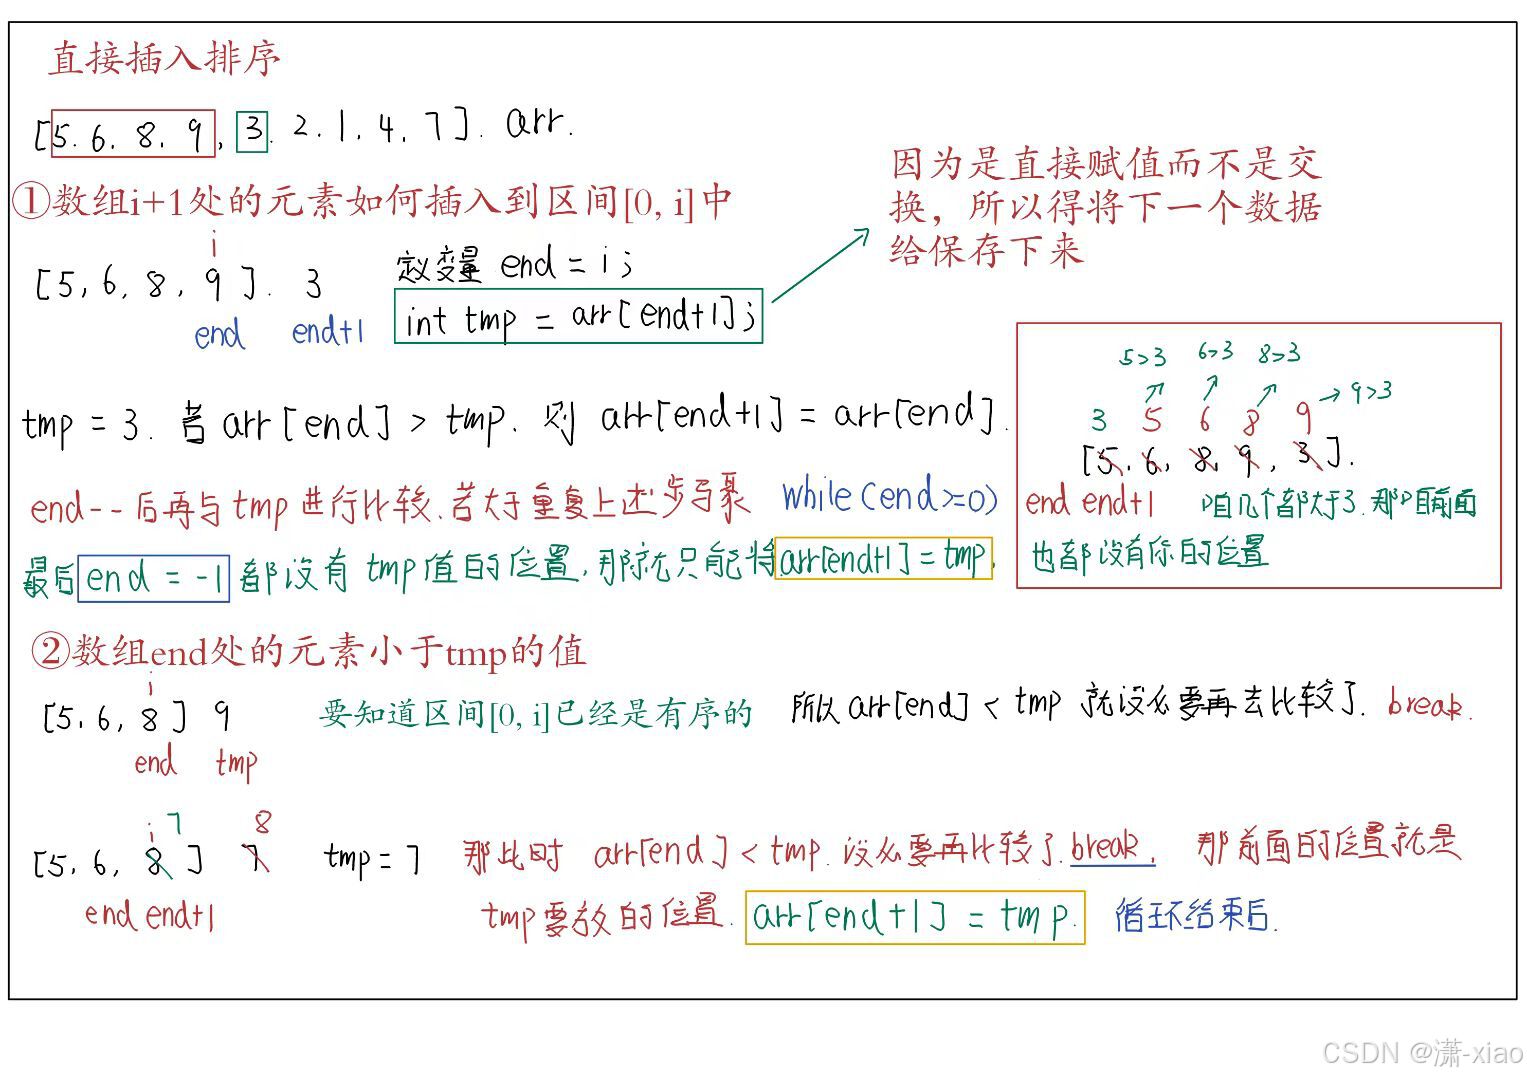 直接插入排序
[5. 6. 8. 9, 3. 2. 1. 4. 7]. arr.
①数组i+1处的元素如何插入到区间[0, i]中
因为是直接赋值而不是交
换，所以得将下一个数据
给保存下来
i
[5, 6, 8, 9]. 3
end end+1
定义变量 end = i;
int tmp = arr[end+1];
tmp = 3. 若 arr[end] > tmp. 则 arr[end+1] = arr[end].
end-- 后再与 tmp 进行比较. 若大于重复上述步骤 while(end>=0)
最后 end = -1 都没有 tmp 值的位置, 那就只能将 arr[end+1] = tmp.
5>3 6>3 8>3
9>3
3 5 6 8 9
[5. 6. 8. 9, 3].
end end+1 咱几个都大于3. 那咱前面
也都没有你的位置
②数组end处的元素小于tmp的值
i
[5. 6, 8] 9 要知道区间[0, i]已经是有序的 所以 arr[end] < tmp 就没必要再去比较了. break.
end tmp
i 7 8
[5, 6, 8] 7 tmp = 7 那此时 arr[end] < tmp. 没必要再比较了. break. 那前面的位置就是
end end+1 tmp要放的位置. arr[end+1] = tmp. 循环结束后.
CSDN @潇-xiao